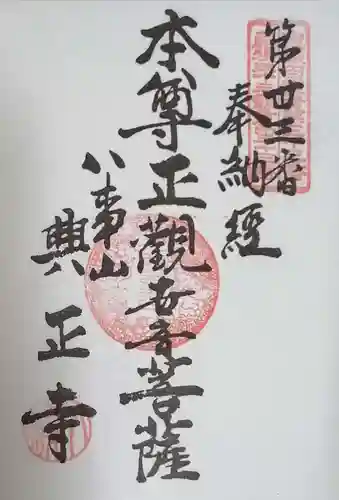 第廿三番
奉納經
本尊正觀世音菩薩
八事山
典正寺